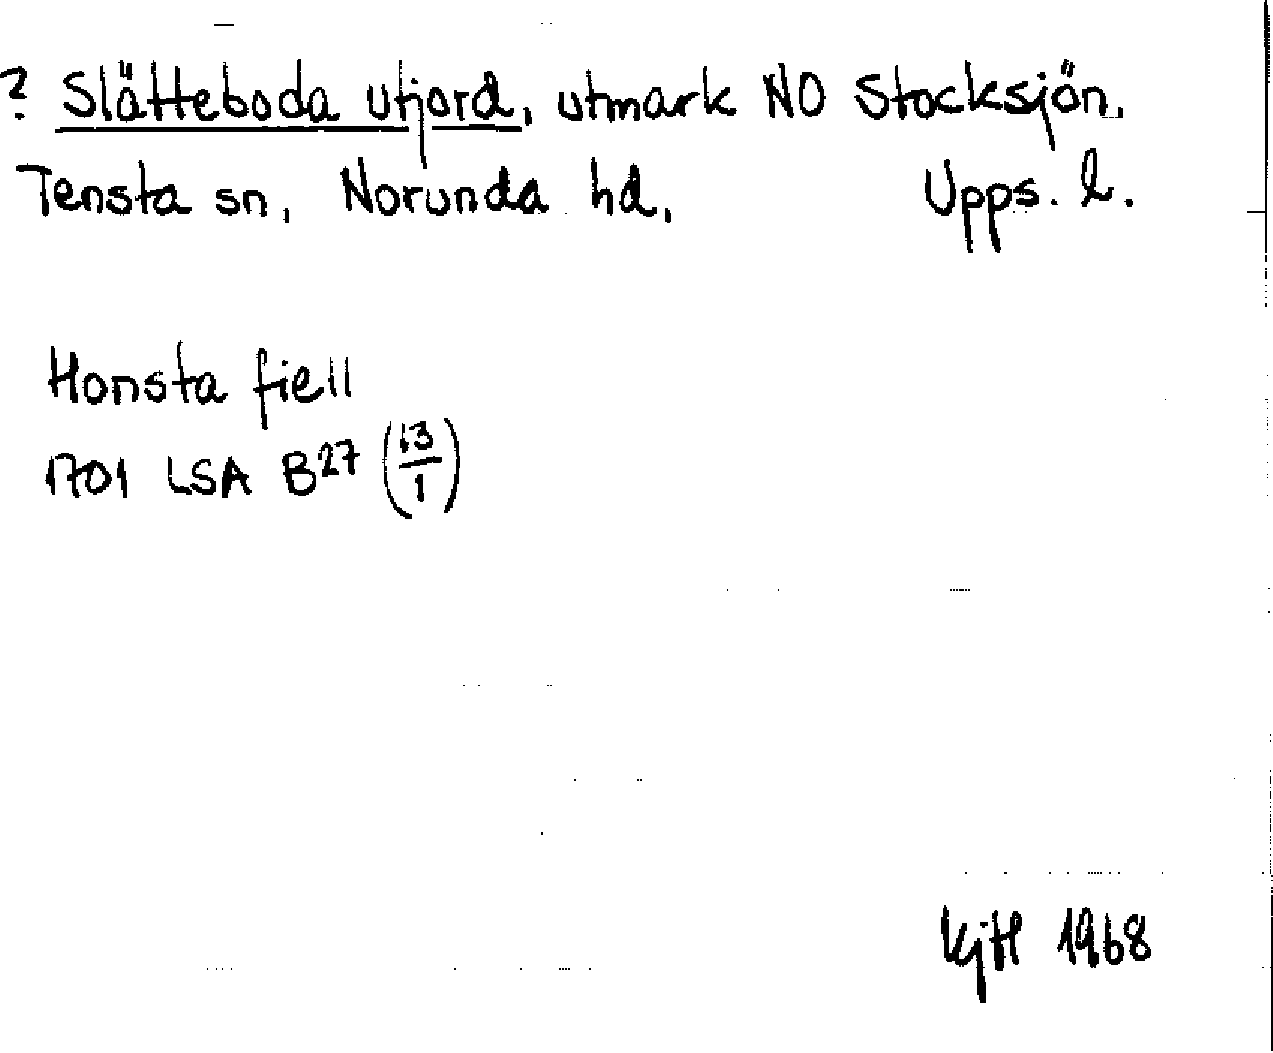 ? Slätteboda utjord, utmark NO Stocksjön.
Tensta sn, Norunda hd, Upps. l.
Honsta fiell
1701 LSA B27 (13/1)
KjH 1968